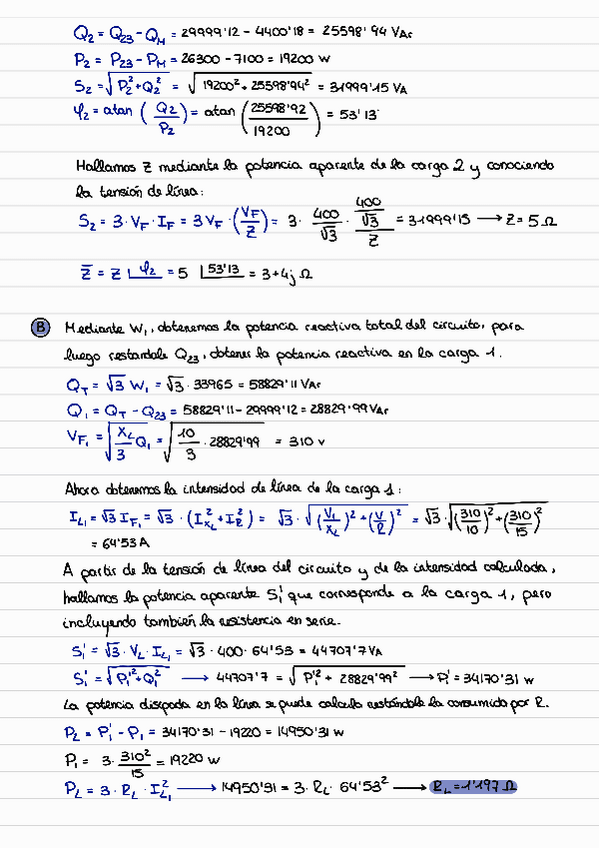 Q₂ = Q₂₃ - Q_M = 29999'12 - 4400'18 = 25598'94 VAr
P₂ = P₂₃ - P_M = 26300 - 7100 = 19200 W
S₂ = √(P₂² + Q₂²) = √(19200² + 25598'94²) = 31999'15 VA
φ₂ = atan (Q₂/P₂) = atan (25598'92/19200) = 53'13
Hallamos Z mediante la potencia aparente de la carga 2 y conociendo
la tensión de línea:
S₂ = 3 · V_F · I_F = 3 V_F · (V_F/Z) = 3 · 400/√3 · (400/√3)/Z = 31999'15 → Z = 5 Ω
Z̄ = Z ∠φ₂ = 5 ∠53'13 = 3+4j Ω
B Mediante W₁, obtenemos la potencia reactiva total del circuito, para
luego restandole Q₂₃, obtener la potencia reactiva en la carga 1.
Q_T = √3 W₁ = √3 · 33965 = 58829'11 VAr
Q₁ = Q_T - Q₂₃ = 58829'11 - 29999'12 = 28829'99 VAr
V_F₁ = √(X_L/3 Q₁) = √(10/3 · 28829'99) = 310 V
Ahora obtenemos la intensidad de línea de la carga 1:
I_L₁ = √3 I_F₁ = √3 · (I_XL² + I_R²) = √3 · √((V_L/X_L)² + (V/R)²) = √3 · √((310/10)² + (310/15)²)
= 64'53 A
A partir de la tensión de línea del circuito y de la intensidad calculada,
hallamos la potencia aparente S₁' que corresponde a la carga 1, pero
incluyendo también la resistencia en serie.
S₁' = √3 · V_L · I_L₁ = √3 · 400 · 64'53 = 44707'7 VA
S₁' = √(P₁'² + Q₁²) → 44707'7 = √(P₁'² + 28829'99²) → P₁' = 34170'31 W
La potencia disipada en la línea se puede calcula restándole la consumida por R.
P_L = P₁' - P₁ = 34170'31 - 19220 = 14950'31 W
P₁ = 3 · 310²/15 = 19220 W
P_L = 3 · R_L · I_L₁² → 14950'31 = 3 · R_L · 64'53² → R_L = 1'197 Ω